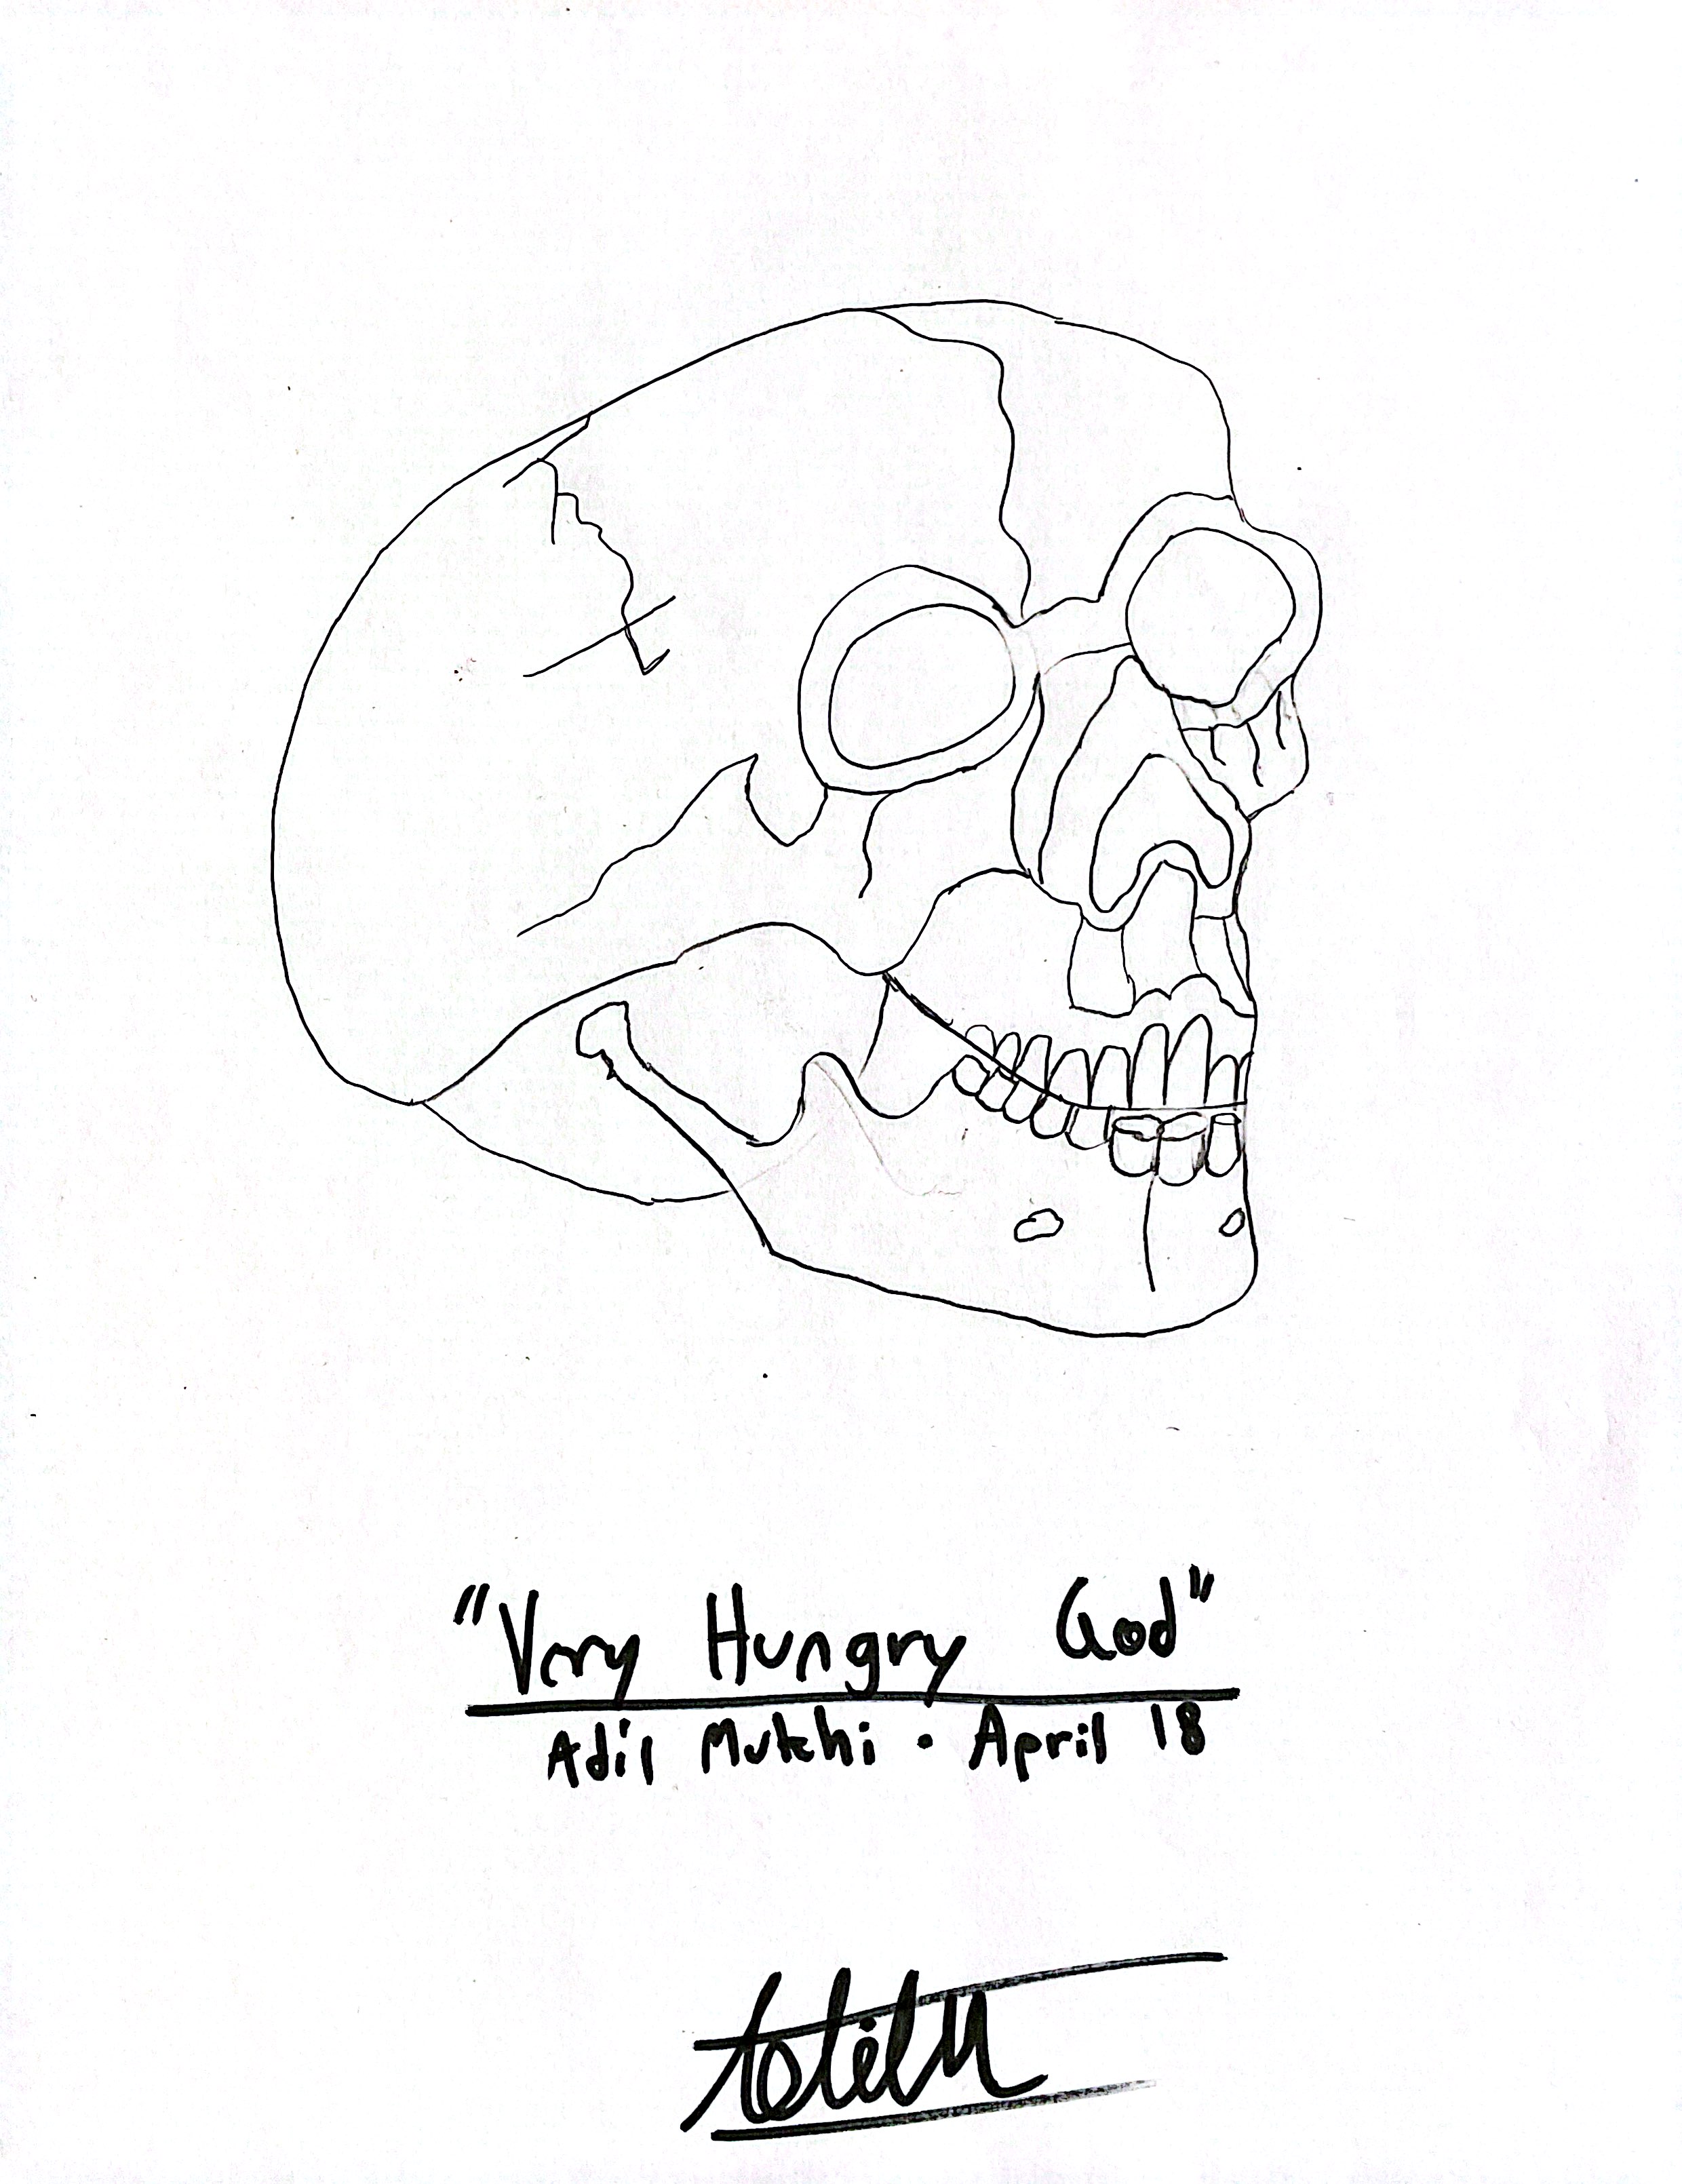 "Very Hungry God"
Adil Mukhi • April 18